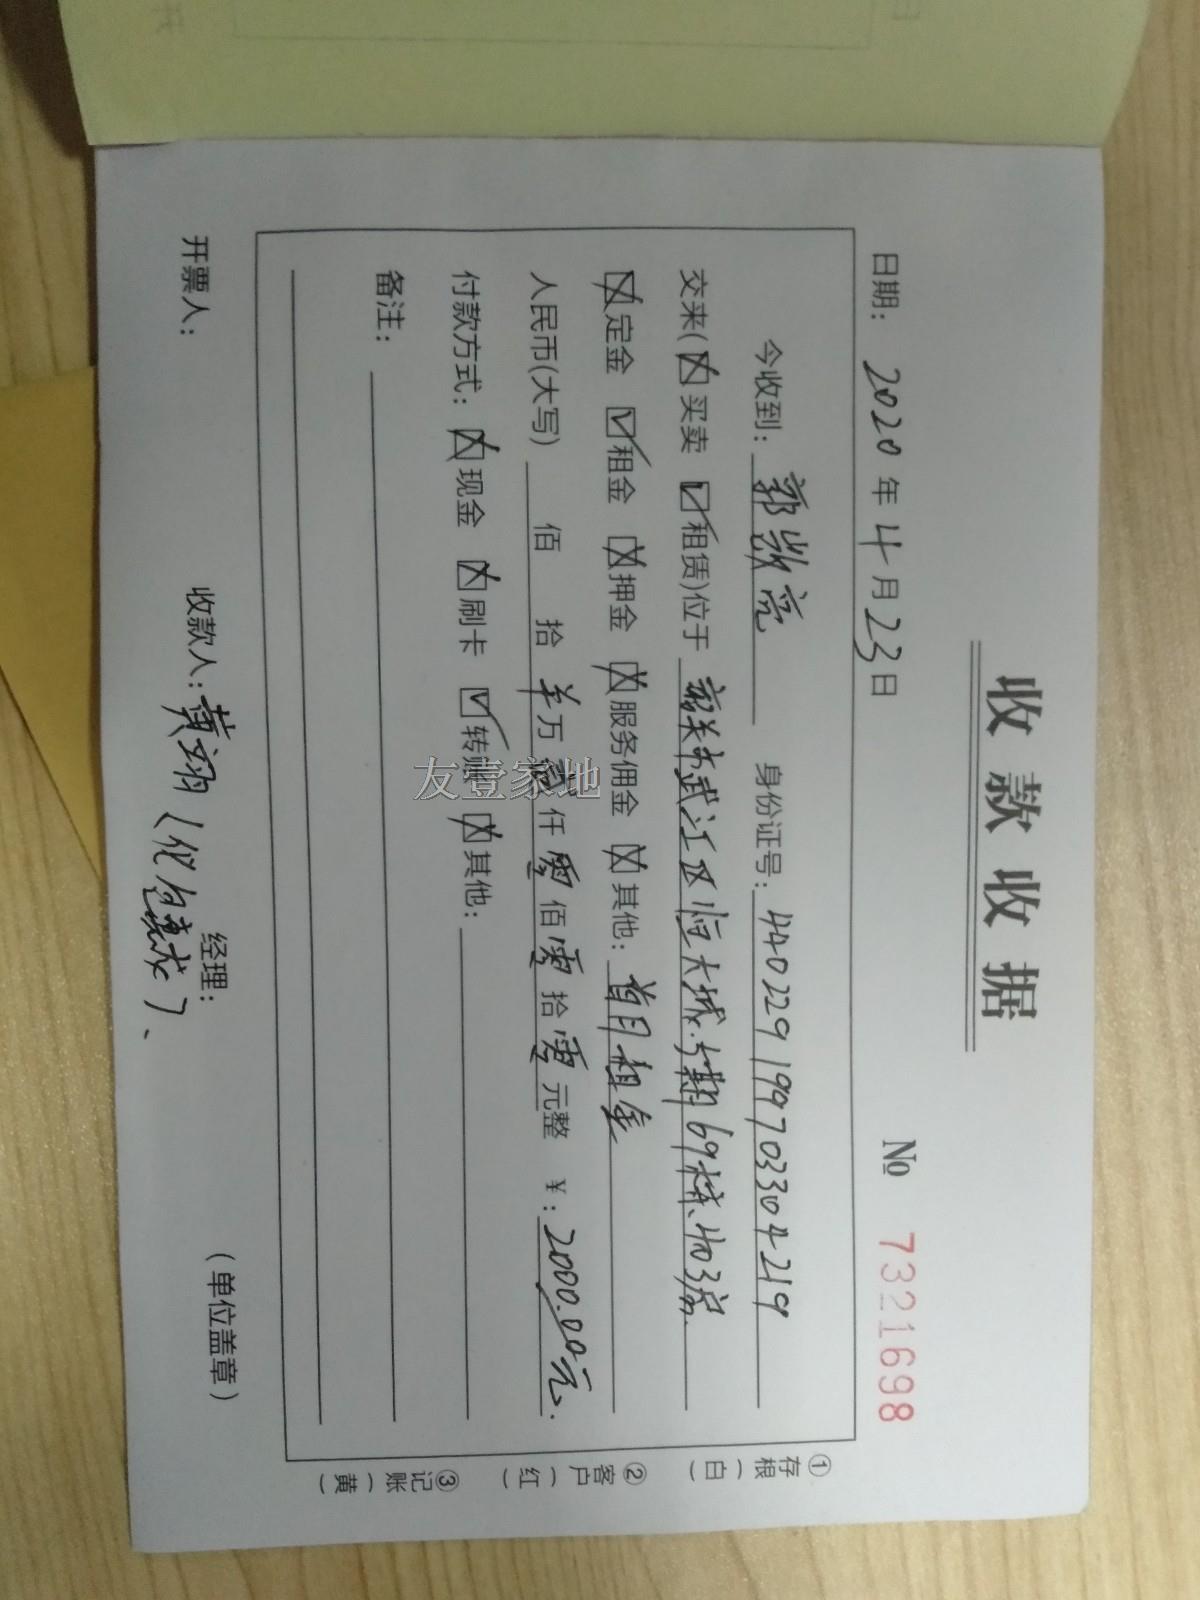 收款收据
日期: 2020年4月23日 № 7321698
今收到: 郭 亮 身份证号: 440229199703304219
交来(☒买卖 ☑租赁)位于 韶关市武江区恒大城 期69栋403房.
☒定金 ☑租金 ☒押金 ☒服务佣金 ☒其他: 首月租金
人民币(大写) 佰 拾 羊万 贰仟零佰零拾零元整 ¥: 2000.00元.
付款方式: ☒现金 ☒刷卡 ☑转账 ☒其他:
备注:
开票人: 收款人: 黄翊 经理: (单位盖章)
①存根(白)
②客户(红)
③记账(黄)
友壹家地